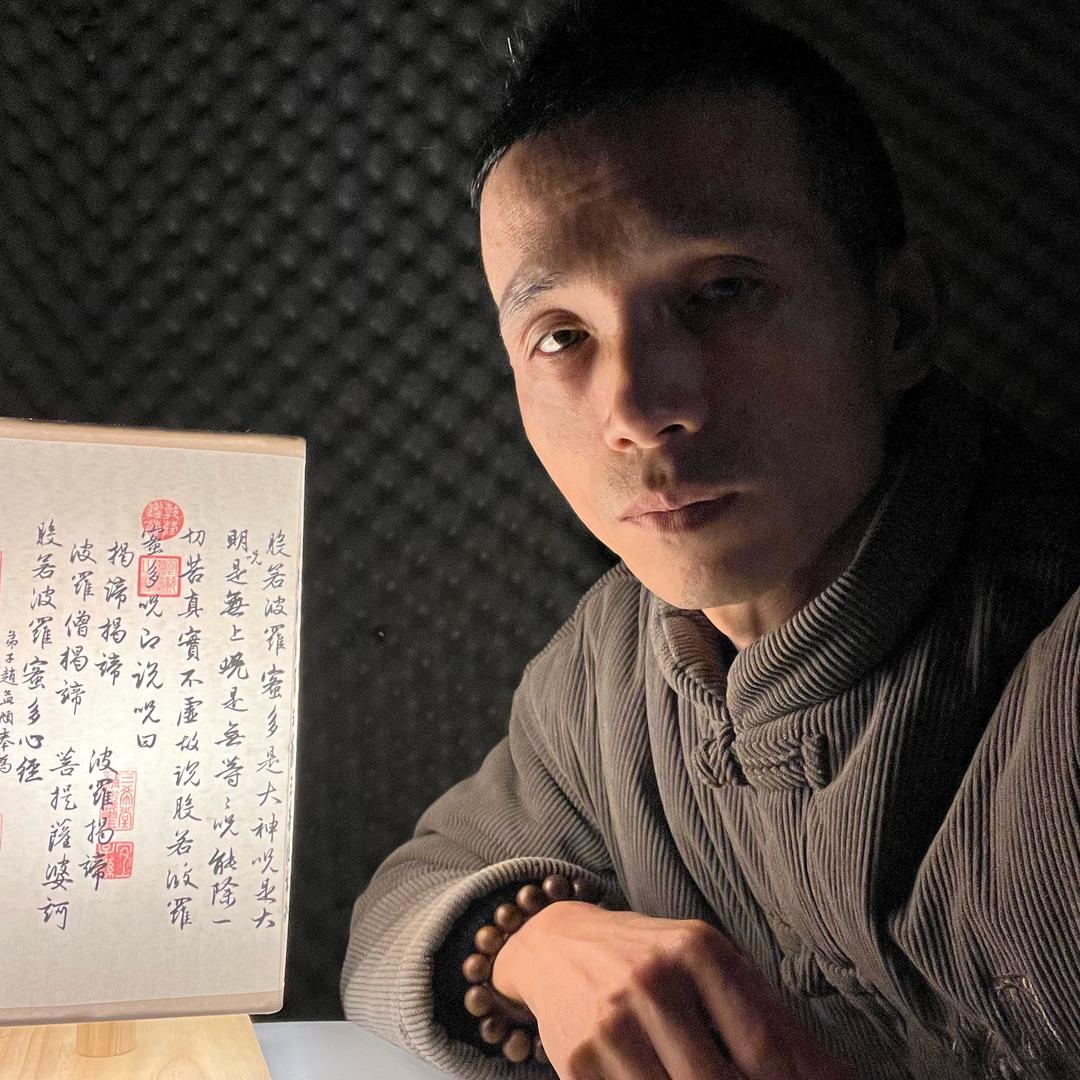 般若波羅蜜多是大神呪是大
明呪是無上呪是無等〻呪能除一
切苦真實不虛故說般若波羅
蜜多呪即說呪曰
揭諦揭諦 波羅揭諦
波羅僧揭諦 菩提薩婆訶
般若波羅蜜多心經
弟子趙孟頫奉為
三希堂